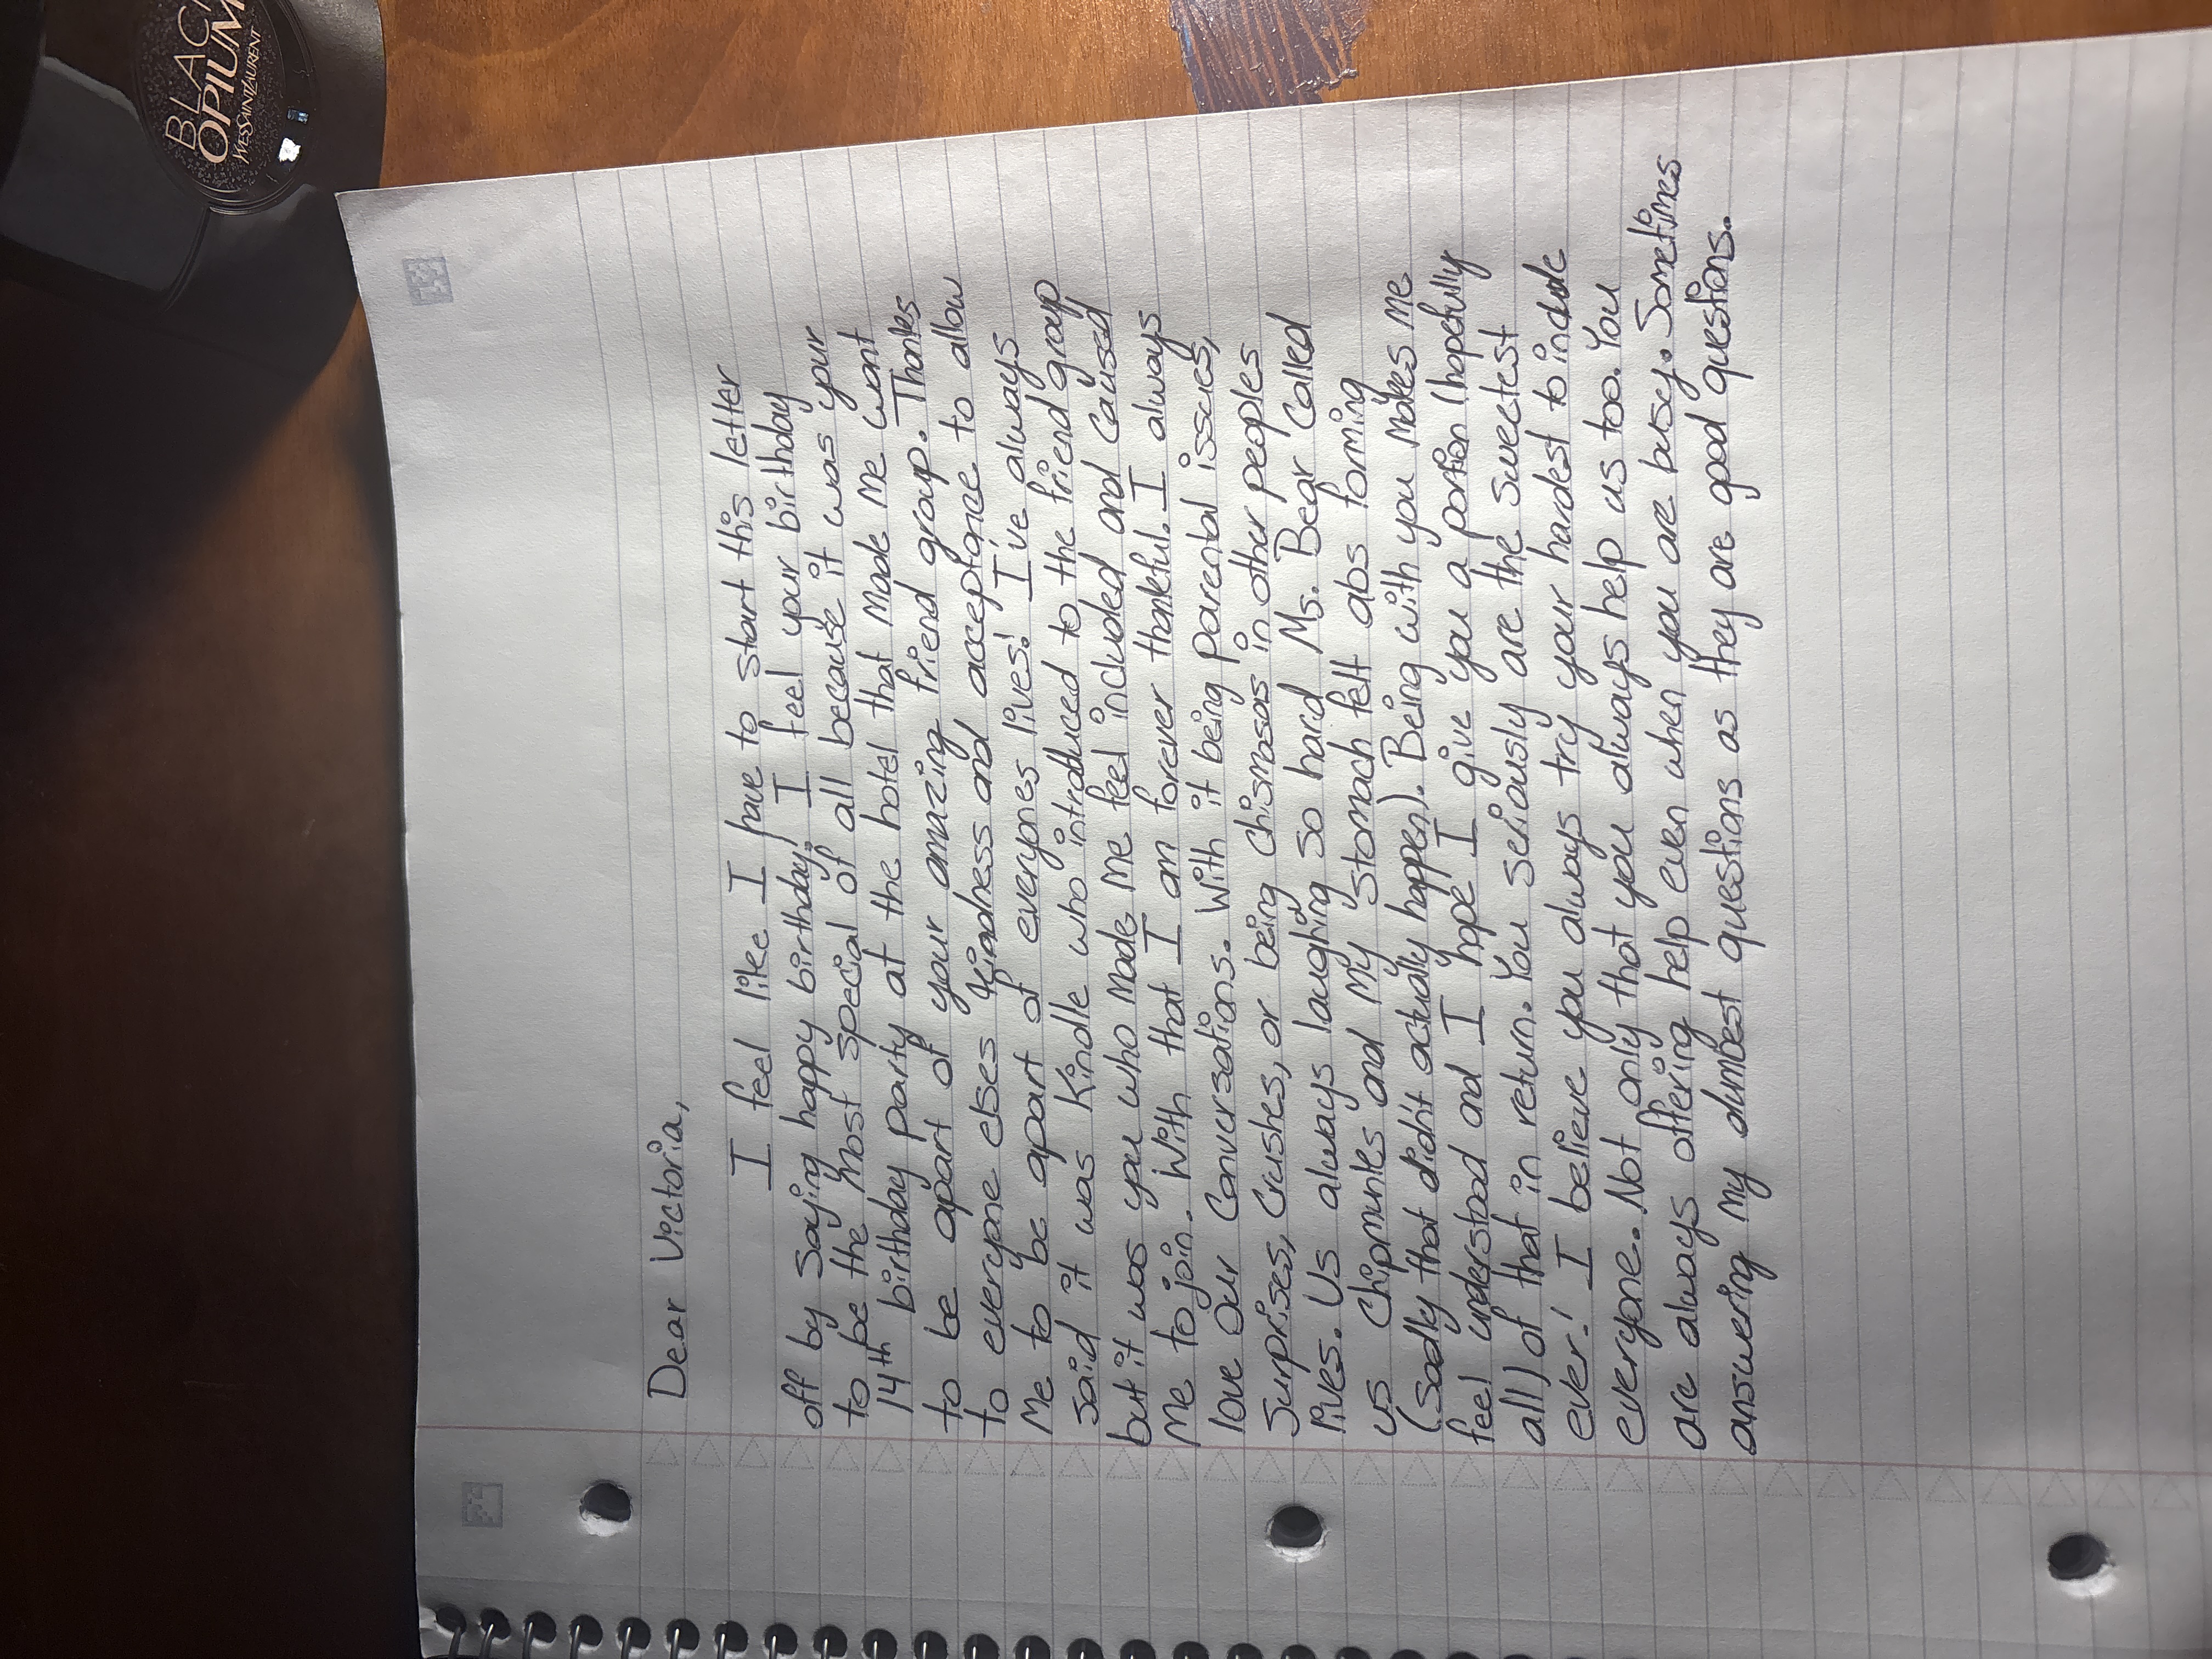 BLAC
OPIUM
YVESSAINTLAURENT
Dear Victoria,
I feel like I have to start this letter
off by saying happy birthday! I feel your birthday
to be the most special of all because it was your
14th birthday party at the hotel that made me want
to be apart of your amazing friend group. Thanks
to everyone elses kindness and acceptance to allow
me to be apart of everyones lives! I've always
said it was Kindle who introduced to the friend group
but it was you who made me feel included and caused
me to join. With that I am forever thankful. I always
love our conversations. With it being parental issues,
surprises, crushes, or being chismosas in other peoples
lives. Us always laughing so hard Ms. Bear called
us chipmunks and my stomach felt abs forming
(sadly that didn't actually happen). Being with you makes me
feel understood and I hope I give you a portion (hopefully
all) of that in return. You seriously are the sweetest
ever! I believe you always try your hardest to include
everyone. Not only that you always help us too. You
are always offering help even when you are busy. Sometimes
answering my dumbest questions as they are good questions.